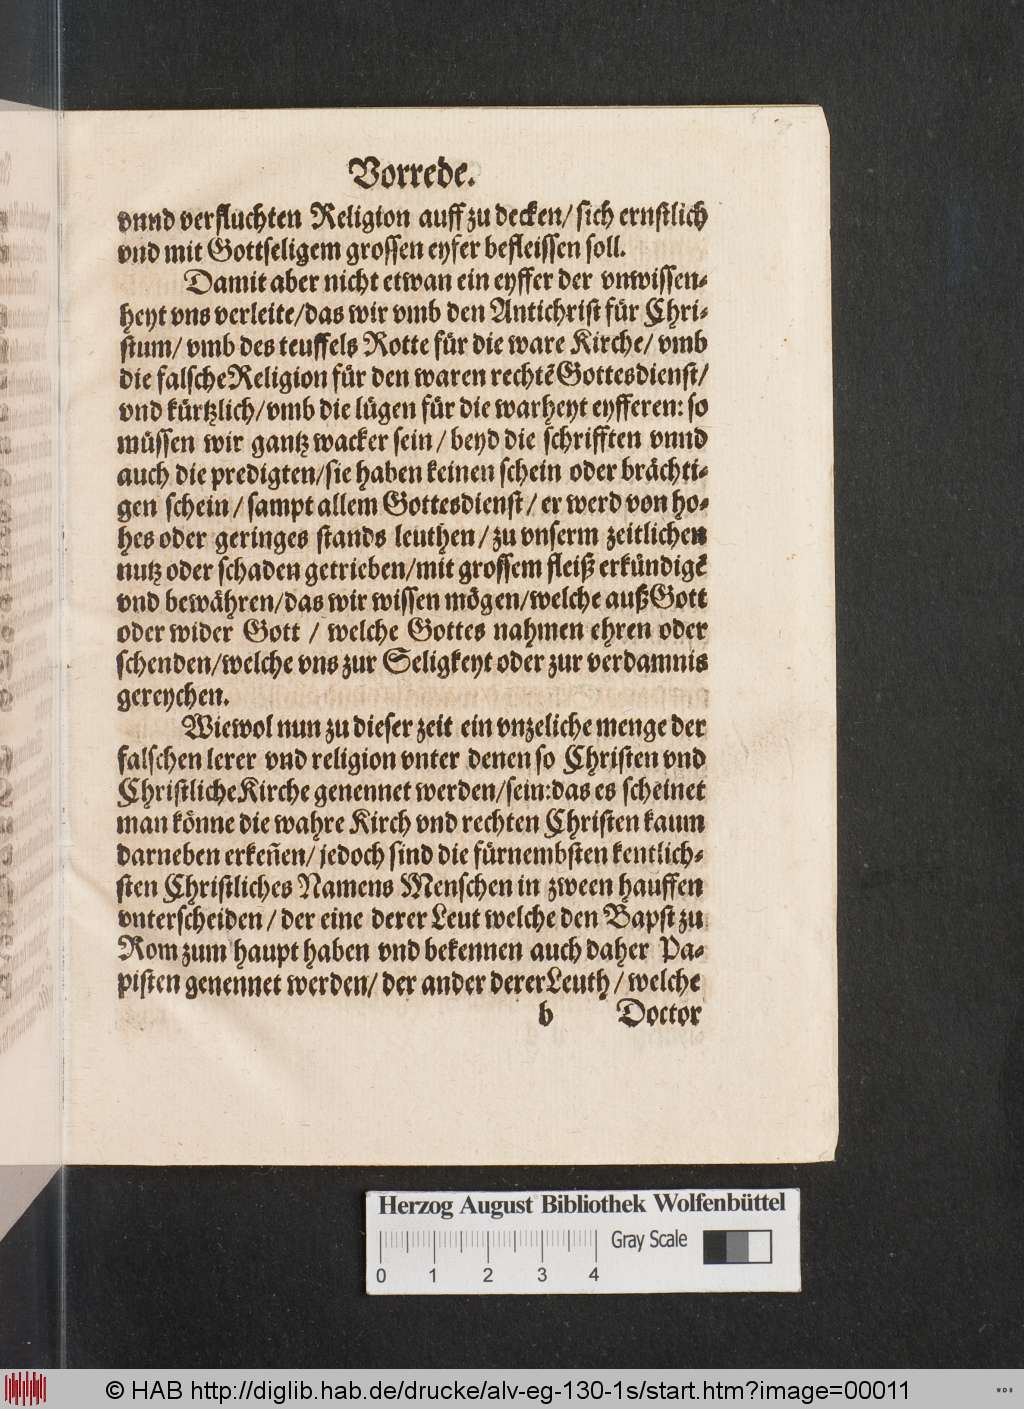 Vorrede.
vnnd verfluchten Religion auff zu decken/ sich ernstlich
vnd mit Gottseligem grossen eyfer befleissen soll.
Damit aber nicht etwan ein eyffer der vnwissen-
heyt vns verleite/das wir vmb den Antichrist für Chri-
stum/ vmb des teuffels Rotte für die ware Kirche/ vmb
die falsche Religion für den waren rechtē Gottesdienst/
vnd kürtzlich/vmb die lügen für die warheyt eyfferen: so
müssen wir gantz wacker sein/ beyd die schrifften vnnd
auch die predigten/sie haben keinen schein oder brächti-
gen schein/ sampt allem Gottesdienst/ er werd von ho-
hes oder geringes stands leuthen/ zu vnserm zeitlichen
nutz oder schaden getrieben/mit grossem fleiß erkündigē
vnd bewähren/das wir wissen mögen/welche auß Gott
oder wider Gott / welche Gottes nahmen ehren oder
schenden/welche vns zur Seligkeyt oder zur verdamnis
gereychen.
Wiewol nun zu dieser zeit ein vnzeliche menge der
falschen lerer vnd religion vnter denen so Christen vnd
Christliche Kirche genennet werden/sein:das es scheinet
man könne die wahre Kirch vnd rechten Christen kaum
darneben erkeñen/ jedoch sind die fürnembsten kentlich-
sten Christliches Namens Menschen in zween hauffen
vnterscheiden/ der eine derer Leut welche den Bapst zu
Rom zum haupt haben vnd bekennen auch daher Pa-
pisten genennet werden/ der ander derer Leuth/ welche
b Doctor
Herzog August Bibliothek Wolfenbüttel
Gray Scale
0 1 2 3 4
© HAB http://diglib.hab.de/drucke/alv-eg-130-1s/start.htm?image=00011